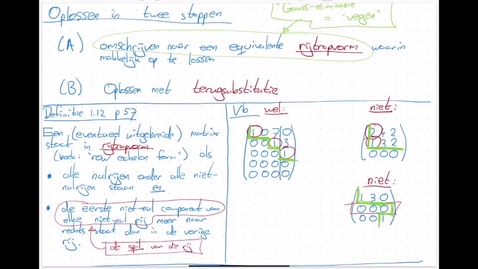 Oplossen in twee stappen
"Gauss-eliminatie
= "vegen"
(A) omschrijven naar een equivalente rijtrapvorm waarin
makkelijk op te lossen
(B) Oplossen met terugsubstitutie
Definitie 1.12 p 57
Een (eventueel uitgebreide) matrix
staat in rijtrapvorm
"row echelon form") als
• alle nulrijen onder alle niet-
nulrijen staan en
• de eerste niet-nul component van
elke niet-nul rij meer naar
rechts staat dan in de vorige
rij.
de spil van die rij
Vb wel:
1 0 7 0
0 0 1 3
0 0 0 1
0 0 0 0
0 0 0 0
niet:
0 0 0
niet:
1 3 0
0 0 0
0 0 1